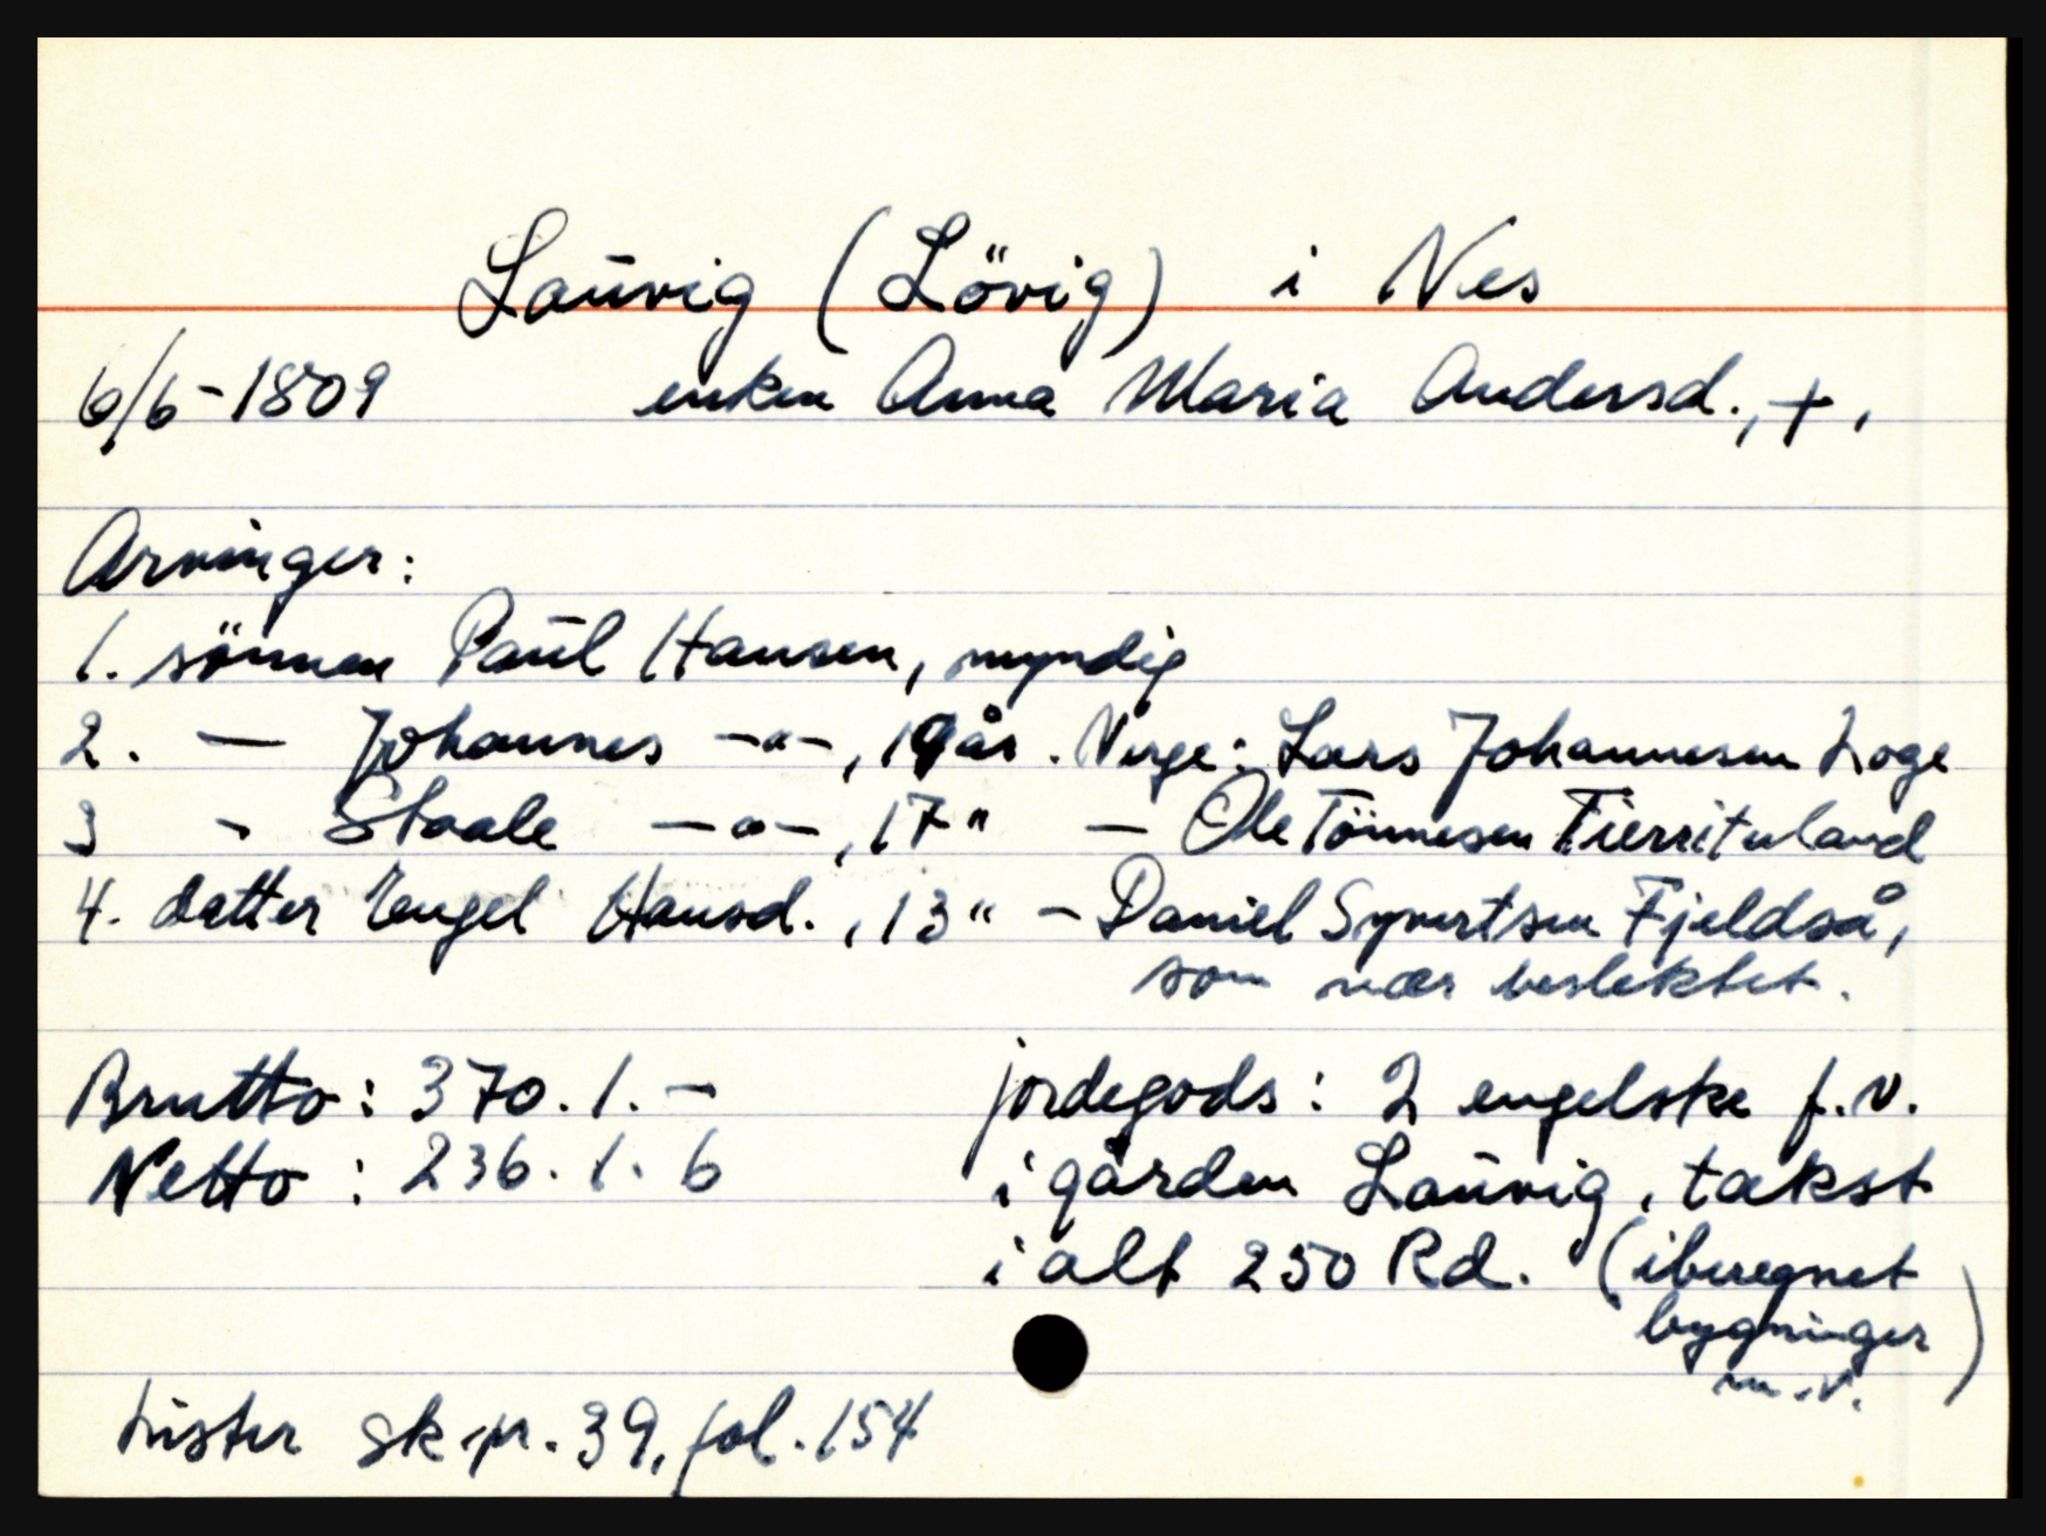 Lauvig (Lövig) i Nes
6/6-1809 enken Anna Maria Andersd., †.
Arvinger:
1. sönnen Paul Hansen, myndig
2. — Johannes —"—, 19 år. Verge: Lars Johannesen Loge
3 - Staale —"—, 17 " — Ole Tönnesen
4. datter Engel Hansd., 13 " — Daniel Syvertsen Fjeldså,
som nær beslektet.
Brutto: 370. 1. —
Netto: 236. 1. 6
jordegods: 2 engelske f. v.
i gården Lauvig, takst
i alt 250 Rd. (iberegnet
bygninger
m.v.)
Lister sk.pr. 39, fol. 154